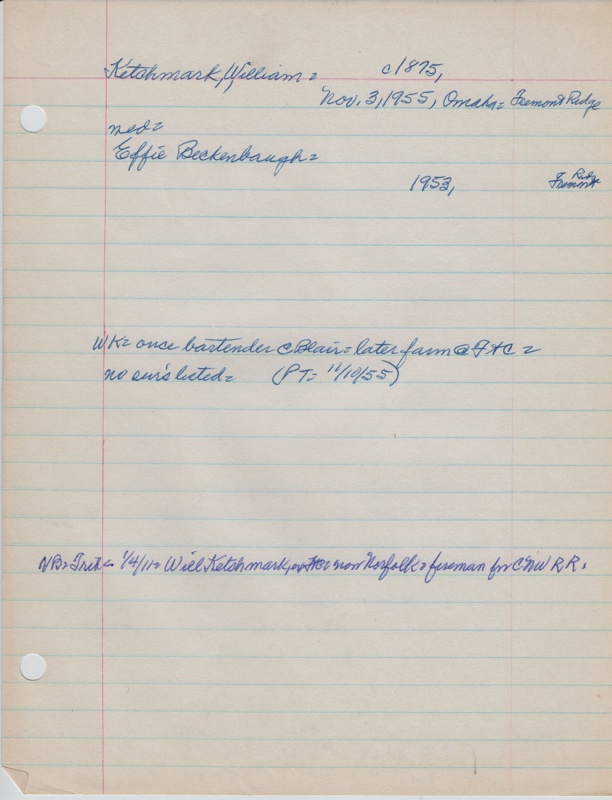 Ketchmark, William = c1875,
Nov. 3, 1955, Omaha = Fremont Ridge
med =
Effie Beckenbaugh =
1953, Ridge
Fremont
WK = once bartender @ Blair = later farm @ Ft C =
no sur's listed = (PT = 11/10/55)
NB = Trib = 1/4/11 = Will Ketchmark, ex Ft C = now Norfolk = fireman for CNW RR.